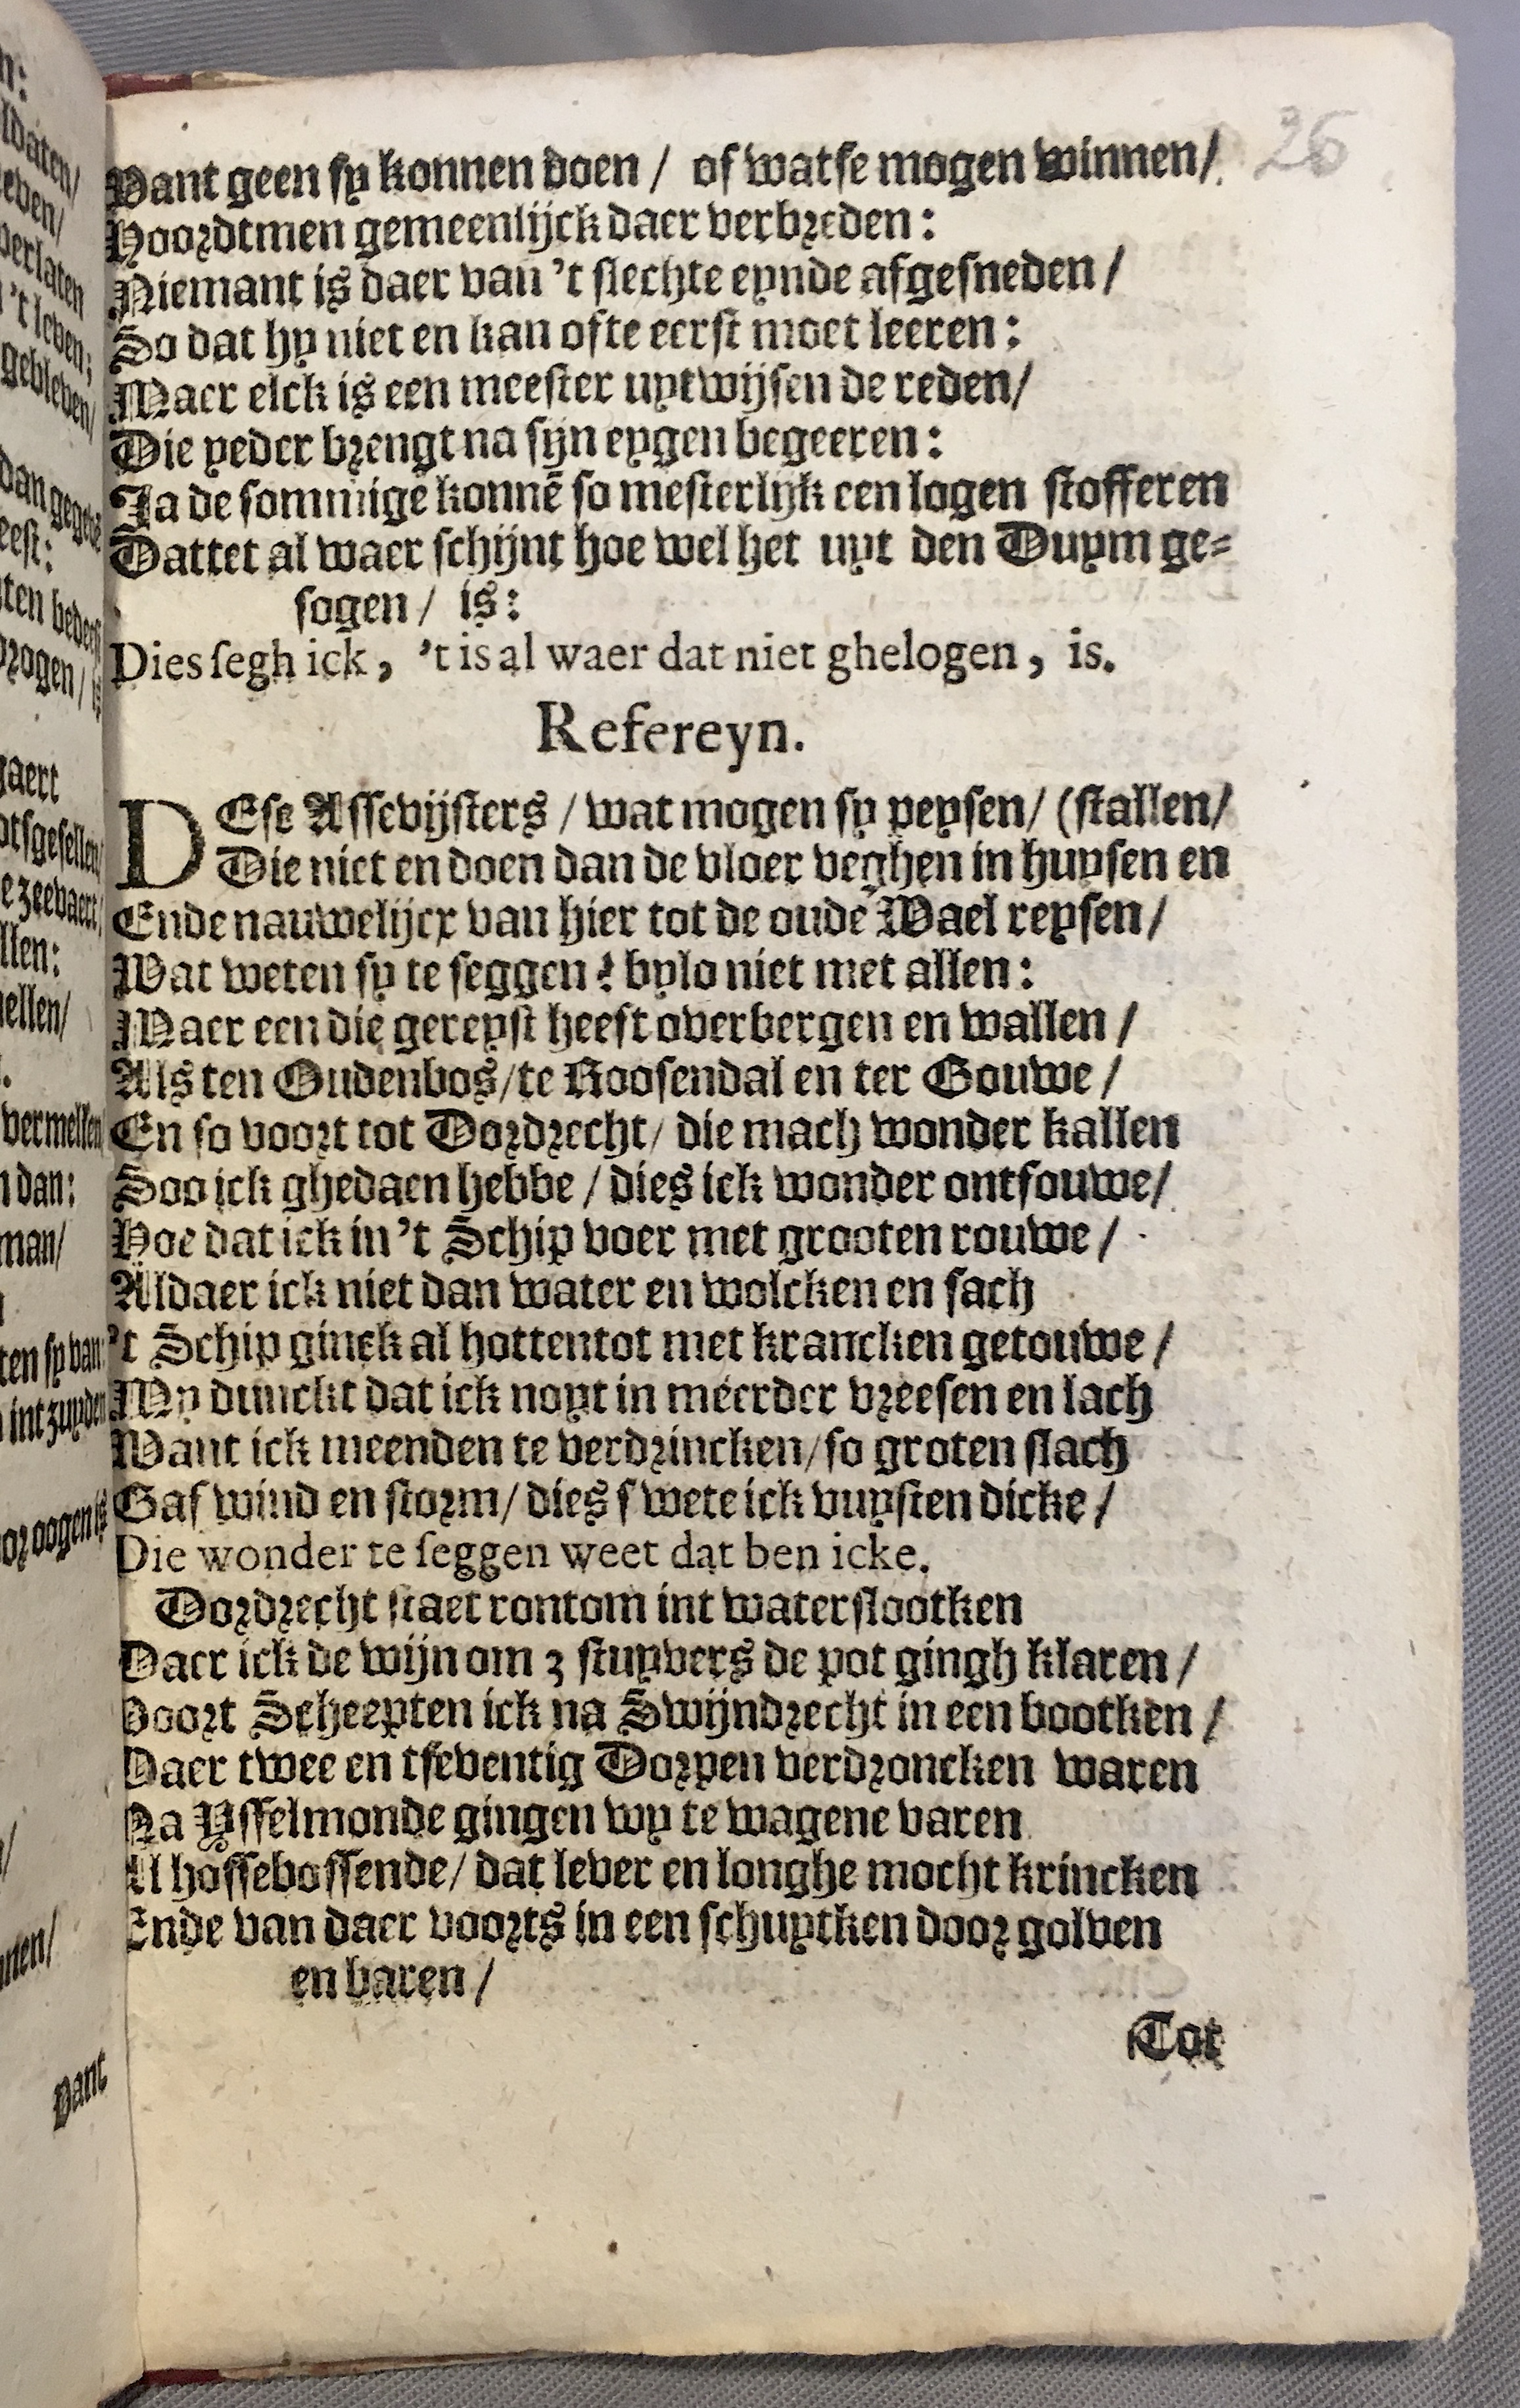 26
Want geen sy konnen doen / of watse mogen winnen/
Hoordtmen gemeenlijck daer verbreden:
Niemant is daer van 't slechte eynde afgesneden /
So dat hy niet en kan ofte eerst moet leeren:
Maer elck is een meester uytwijsen de reden/
Die yeder brengt na sijn eygen begeeren:
Ja de sommigē konnē so mesterlijk een logen stofferen
Dattet al waer schijnt hoe wel het uyt den Duym ge-
sogen / is:
Dies segh ick, 't is al waer dat niet ghelogen, is.
Refereyn.
DEse Assevijsters / wat mogen sy peysen/ (stallen/
Die niet en doen dan de vloer veghen in huysen en
Ende nauwelijcx van hier tot de oude Wael reysen /
Wat weten sy te seggen? bylo niet met allen:
Maer een die gereyst heeft over bergen en wallen /
Als ten Oudenbos/te Roosendal en ter Gouwe /
En so voort tot Dordrecht/ die mach wonder kallen
Soo ick ghedaen hebbe / dies ick wonder ontfouwe/
Hoe dat ick in 't Schip voer met grooten rouwe /
Aldaer ick niet dan water en wolcken en sach
't Schip ginck al hottentot met krancken getouwe /
My dunckt dat ick noyt in meerder vreesen en lach
Want ick meenden te verdrincken/so groten slach
Gaf wind en storm/ dies swete ick vuysten dicke /
Die wonder te seggen weet dat ben icke.
Dordrecht staet rontom int waterslootken
Daer ick de wijn om 3 stuyvers de pot gingh klaren /
Voort Scheepten ick na Swijndrecht in een bootken /
Daer twee en tseventig Dorpen verdroncken waren
Na Ysselmonde gingen wy te wagene varen
Al hossebossende/ dat lever en longhe mocht krincken
Ende van daer voorts in een schuytken door golven
en baren /
Tot